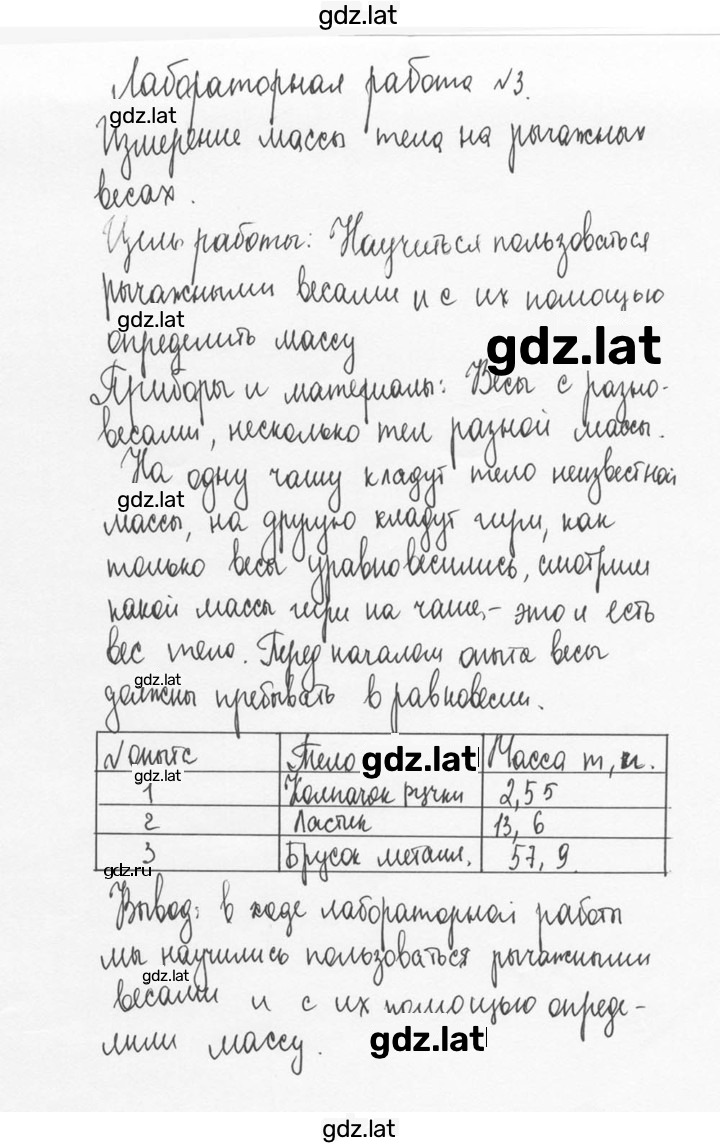 gdz.lat
Лабораторная работа №3.
gdz.lat
Измерение массы тела на рычажных
весах.
Цель работы: Научиться пользоваться
рычажными весами и с их помощью
gdz.lat
определить массу
gdz.lat
Приборы и материалы: Весы с разно-
весами, несколько тел разной массы.
На одну чашу кладут тело неизвестной
gdz.lat
массы, на другую кладут гири, как
только весы уравновесились, смотрим
какой массы гири на чаше, - это и есть
вес тело. Перед началом опыта весы
gdz.lat
должны пребывать в равновесии.
№ опыта Тело gdz.lat Масса m, г.
gdz.lat
1 Колпачок ручки 2,55
2 Ластик 13,6
3 Брусок металл. 57,9
gdz.ru
Вывод: в ходе лабораторной работы
мы научились пользоваться рычажными
gdz.lat
весами и с их помощью опреде-
лили массу.
gdz.lat
gdz.lat